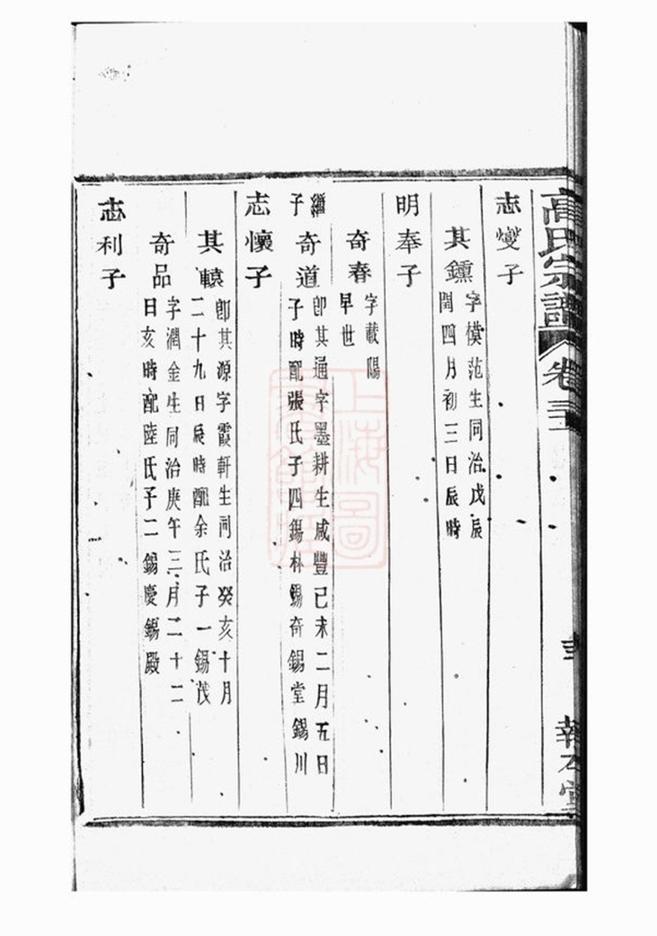 高氏宗譜
卷三
報本堂
志燮子
其鑂
字模范生同治戊辰
閏四月初三日辰時
明奉子
奇春
字載陽
早世
繼子
奇道
即其通字墨耕生咸豐己未二月五日
子時配張氏子四錫朴錫奇錫堂錫川
志懷子
其轅
即其源字霞軒生同治癸亥十月
二十九日辰時配余氏子一錫茂
奇品
字潤金生同治庚午三月二十二
日亥時配陸氏子二錫慶錫殿
志利子